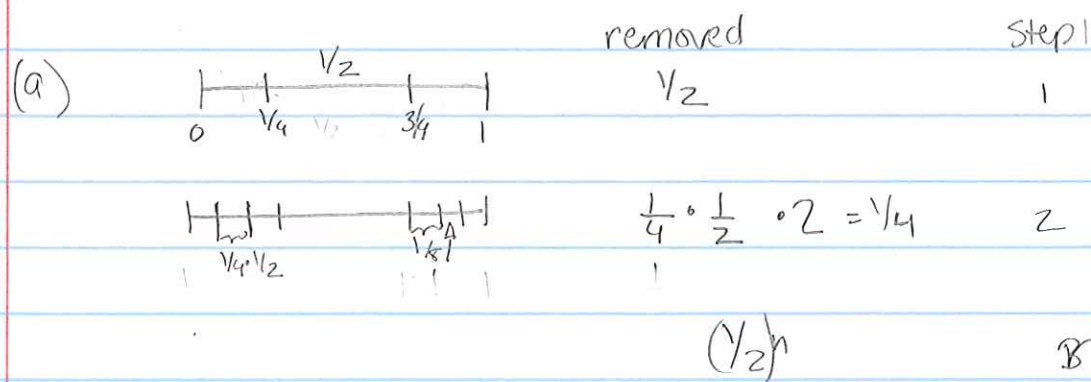 removed step 1
(a) 1/2 1/2 1
0 1/4 3/4 1
1/4 · 1/2 · 2 = 1/4 2
1/4 · 1/2 1/8
(1/2)^n